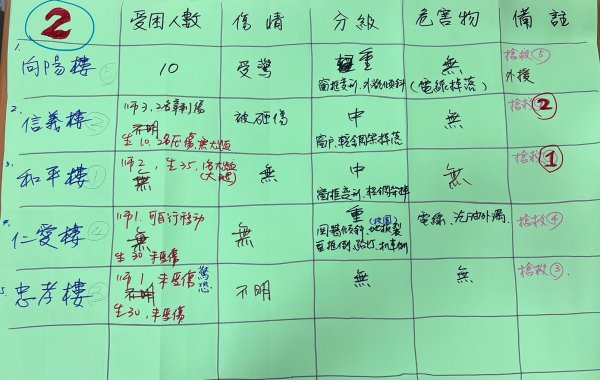 ②
受困人數 傷情 分級 危害物 備註
1. 向陽樓 ⑤ 10 受驚 重 無 搶救⑤
窗框變形、外牆傾斜 (電線掉落) 外援
2. 信義樓 ② 師3, 2名輕傷 被砸傷 中 無 搶救②
不明
生10, 2名死傷 無大礙 窗戶、輕鋼架掉落
3. 和平樓 ① 師2, 生35, 無 中 無 搶救①
無
窗框變形、輕鋼架掉
4. 仁愛樓 ④ 師1. 可自行移動 無 重 (校園) 電線、汽油外漏 搶救④
無
生30 未受傷 圍牆傾斜、地板裂
路燈、机車倒
5. 忠孝樓 ③ 師1, 未受傷 驚恐 不明 無 無 搶救③.
不明
生30, 未受傷